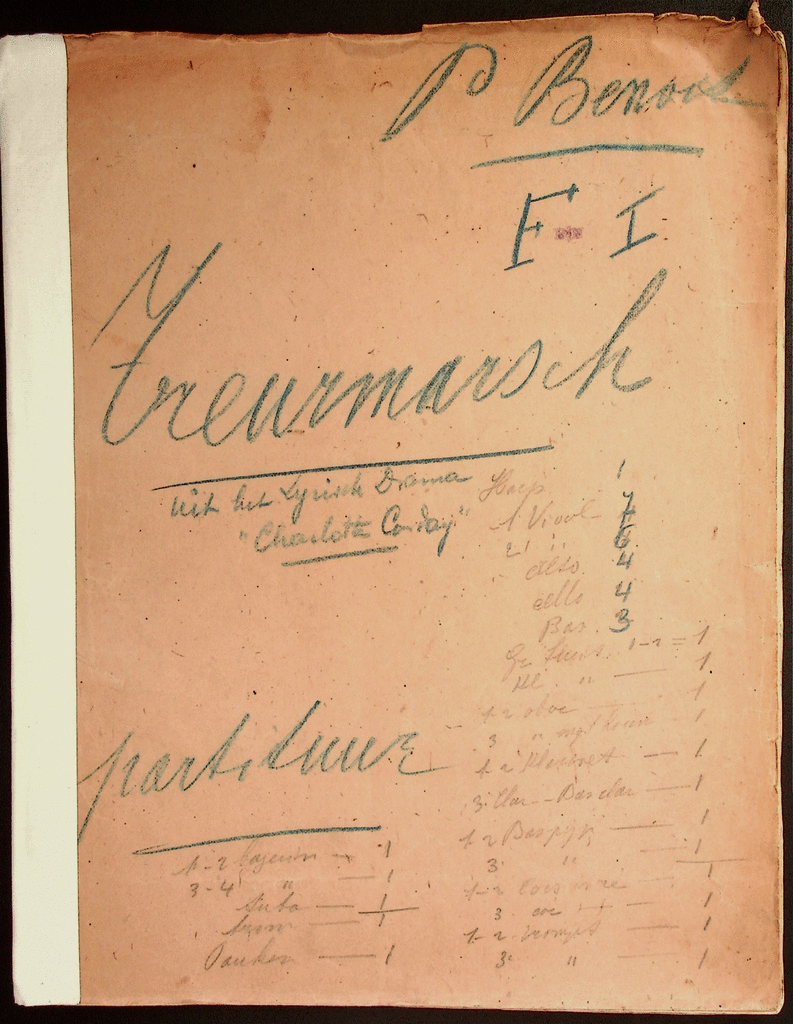 P Benoit
F - I
Treurmarsch
Uit het Lyrisch Drama
"Charlotte Corday"
Harp 1
1 Viool 7
2 " 6
Alto 4
cello 4
Bas 3
1-2 = 1
Kl. " — 1
1-2 oboe — 1
3 " 1
1-2 Klarinet — 1
3. Clar - Basclar — 1
1-2 — 1
3 " — 1
1-2 — 1
3 — 1
1-2 trompet — 1
3 " — 1
partituur
1-2 — 1
3-4 " — 1
tuba — 1
trom — 1
Pauken — 1